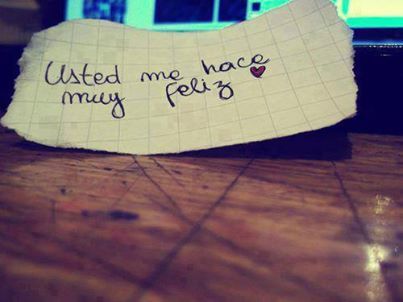 Usted me hace
muy feliz